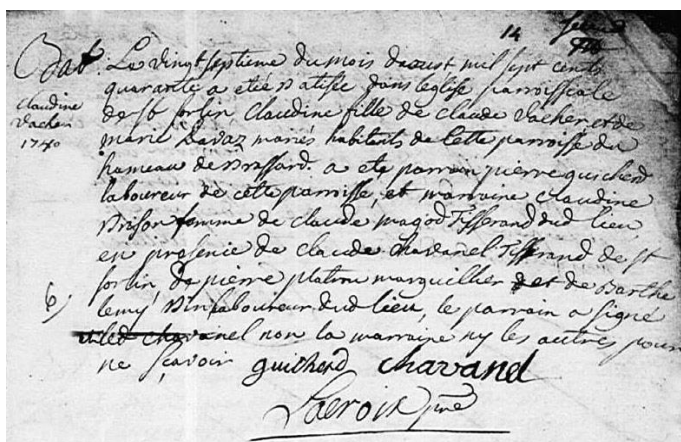 14
Bat.
Claudine
Vacher
1740
Le vingt septieme du mois daoust mil sept cents
quarante a eté batisée dans leglise parroissiale
de st fortin, Claudine fille de claude vacher et de
marie Lavaz mariés habitants de cette parroisse du
hameau de brassard. a ete parrain pierre guicherd
laboureur de cette parroisse, et marraine claudine
brison femme de claude magod Tisserand dud lieu,
en presence de claude chavanel Tisserand de st
fortin, de pierre platon marguillier et de Barthe
lemy laboureur dud lieu, le parrain a signé
et led chavanel non la marraine ny les autres pour
ne sçavoir guicherd chavanel
Lacroix curé